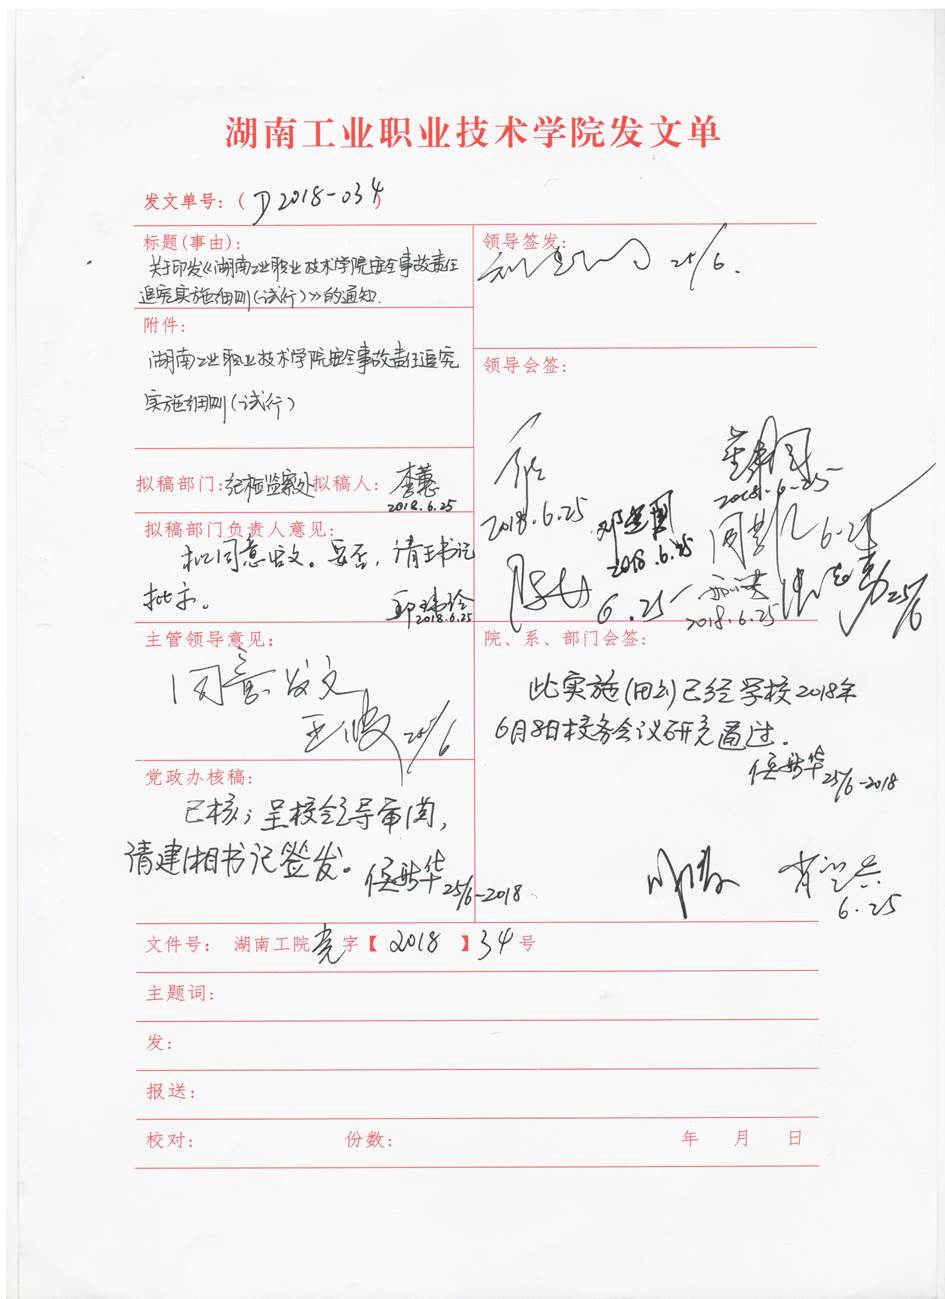 湖南工业职业技术学院发文单
发文单号：( D2018-034)
标题(事由):
关于印发《湖南工业职业技术学院安全事故责任
追究实施细则(试行)》的通知.
附件:
湖南工业职业技术学院安全事故责任追究
实施细则(试行)
拟稿部门:纪检监察处拟稿人: 李慧
2018.6.25
拟稿部门负责人意见:
拟同意发文。妥否，请王书记
批示。
2018.6.25
主管领导意见:
同意发文
25/6
党政办核稿:
已核；呈校领导审阅，
请建湘书记签发。
25/6-2018
领导签发:
25/6.
领导会签:
2018.6.25
2018.6.25
2018.6.25
6.25
6.25
2018.6.25
25/6
院、系、部门会签:
此实施细则已经学校2018年
6月8日校务会议研究通过.
25/6-2018
6.25
文件号: 湖南工院党字【2018】34号
主题词:
发:
报送:
校对: 份数: 年 月 日